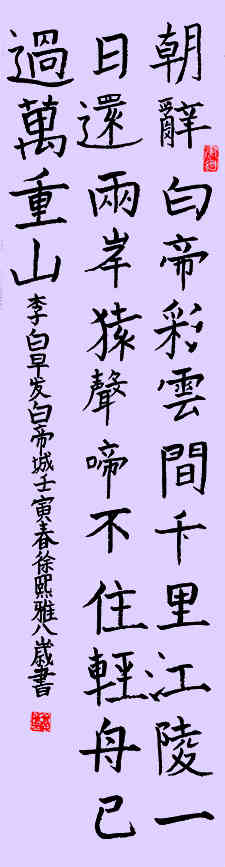 朝辭白帝彩雲間千里江陵一
日還兩岸猿聲啼不住輕舟已
過萬重山
李白早发白帝城壬寅春徐熙雅八歲書